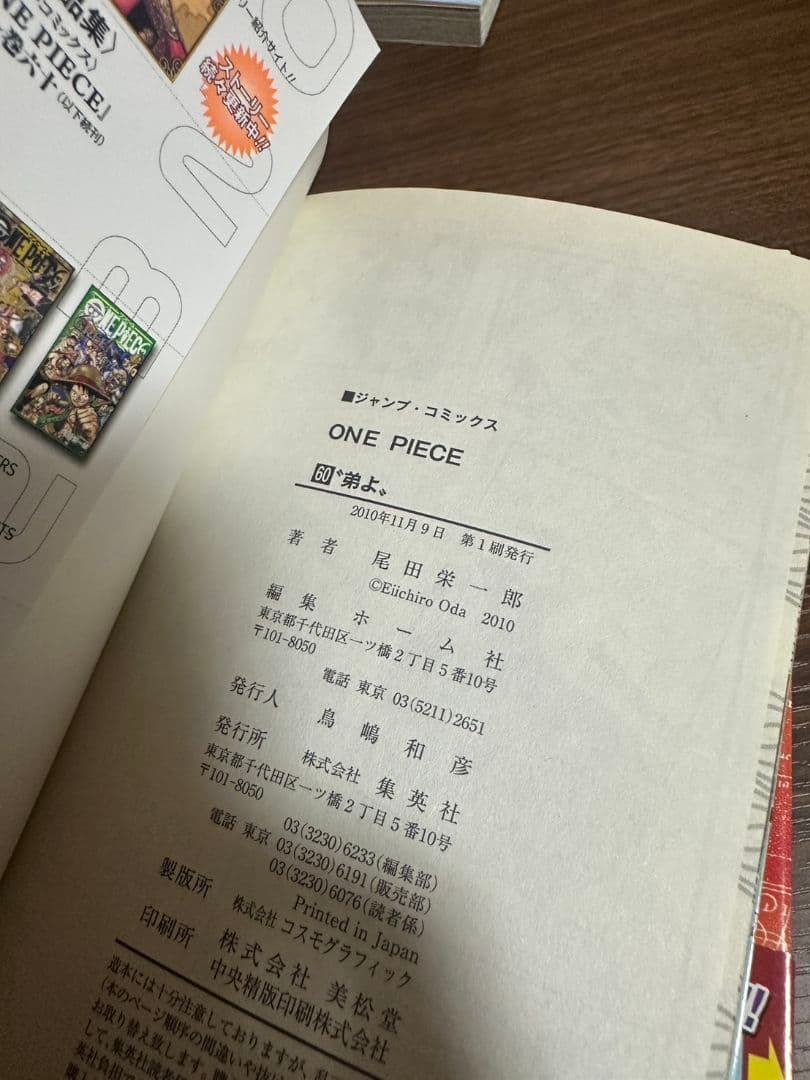 品集〉
コミックス〉
NE PIECE』
巻六十(以下続刊)
リー紹介サイト!!
ストーリー
続々更新中!!
ONE PIECE
ONE PIECE
RS
TS
■ジャンプ・コミックス
ONE PIECE
60〝弟よ〟
2010年11月9日 第1刷発行
著者 尾田栄一郎
©Eiichiro Oda 2010
編集 ホーム社
東京都千代田区一ツ橋2丁目5番10号
〒101-8050
電話 東京 03(5211)2651
発行人 鳥嶋和彦
発行所 株式会社 集英社
東京都千代田区一ツ橋2丁目5番10号
〒101-8050
03(3230)6233(編集部)
電話 東京 03(3230)6191(販売部)
03(3230)6076(読者係)
Printed in Japan
製版所 株式会社 コスモグラフィック
印刷所 株式会社 美松堂
中央精版印刷株式会社
造本には十分注意しておりますが、乱
(本のページ順序の間違いや抜け
お取り替え致します。購
して、集英社読者係
英社負担で
購入